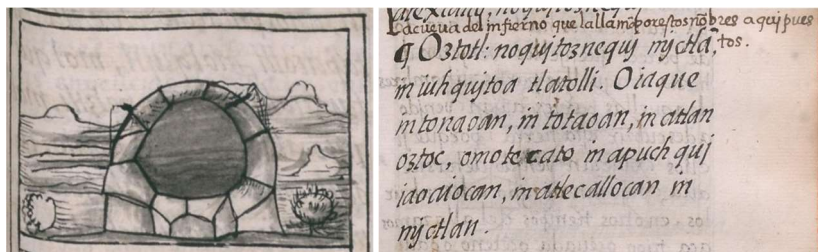 La cueua del infierno que la llamã por estos nõbres aqui pues
¶ Oztotl: noquijtoznequj mjctlã, tos.
in iuhqujtoa tlatolli. Oiaque
in tonaoan, in totaoan, in atlan
oztoc, omotecato, in apuchqui
iaoaiocan, in atlecallocan in
mjctlan.